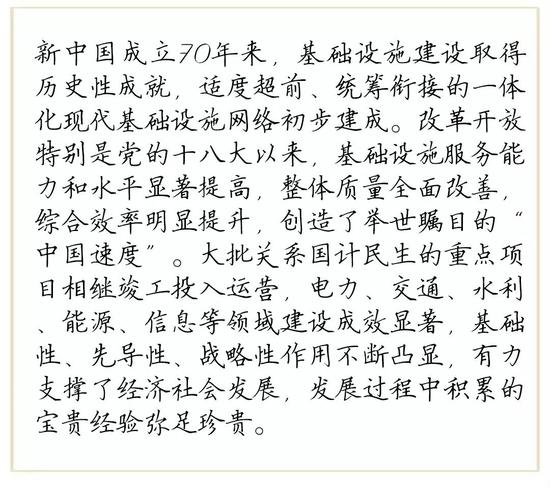 新中国成立70年来，基础设施建设取得
历史性成就，适度超前、统筹衔接的一体
化现代基础设施网络初步建成。改革开放
特别是党的十八大以来，基础设施服务能
力和水平显著提高，整体质量全面改善，
综合效率明显提升，创造了举世瞩目的“
中国速度”。大批关系国计民生的重点项
目相继竣工投入运营，电力、交通、水利
、能源、信息等领域建设成效显著，基础
性、先导性、战略性作用不断凸显，有力
支撑了经济社会发展，发展过程中积累的
宝贵经验弥足珍贵。